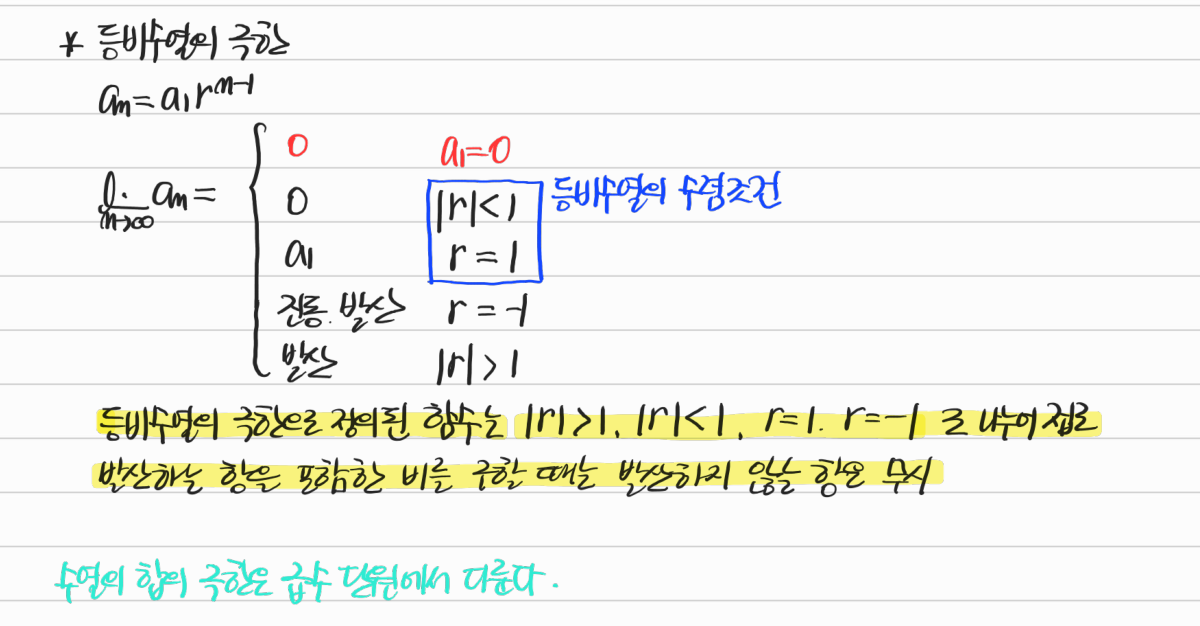 * 등비수열의 극한
aₙ = a₁rⁿ⁻¹
lim n→∞ aₙ =
0 a₁=0
0 |r|<1 등비수열의 수렴조건
a₁ r = 1
진동. 발산 r = -1
발산 |r| > 1
등비수열의 극한으로 정의된 함수는 |r|>1, |r|<1, r=1. r=-1 로 나누어 접근
발산하는 항을 포함한 비를 구할 때는 발산하지 않는 항은 무시
수열의 합의 극한은 급수 단원에서 다룬다.